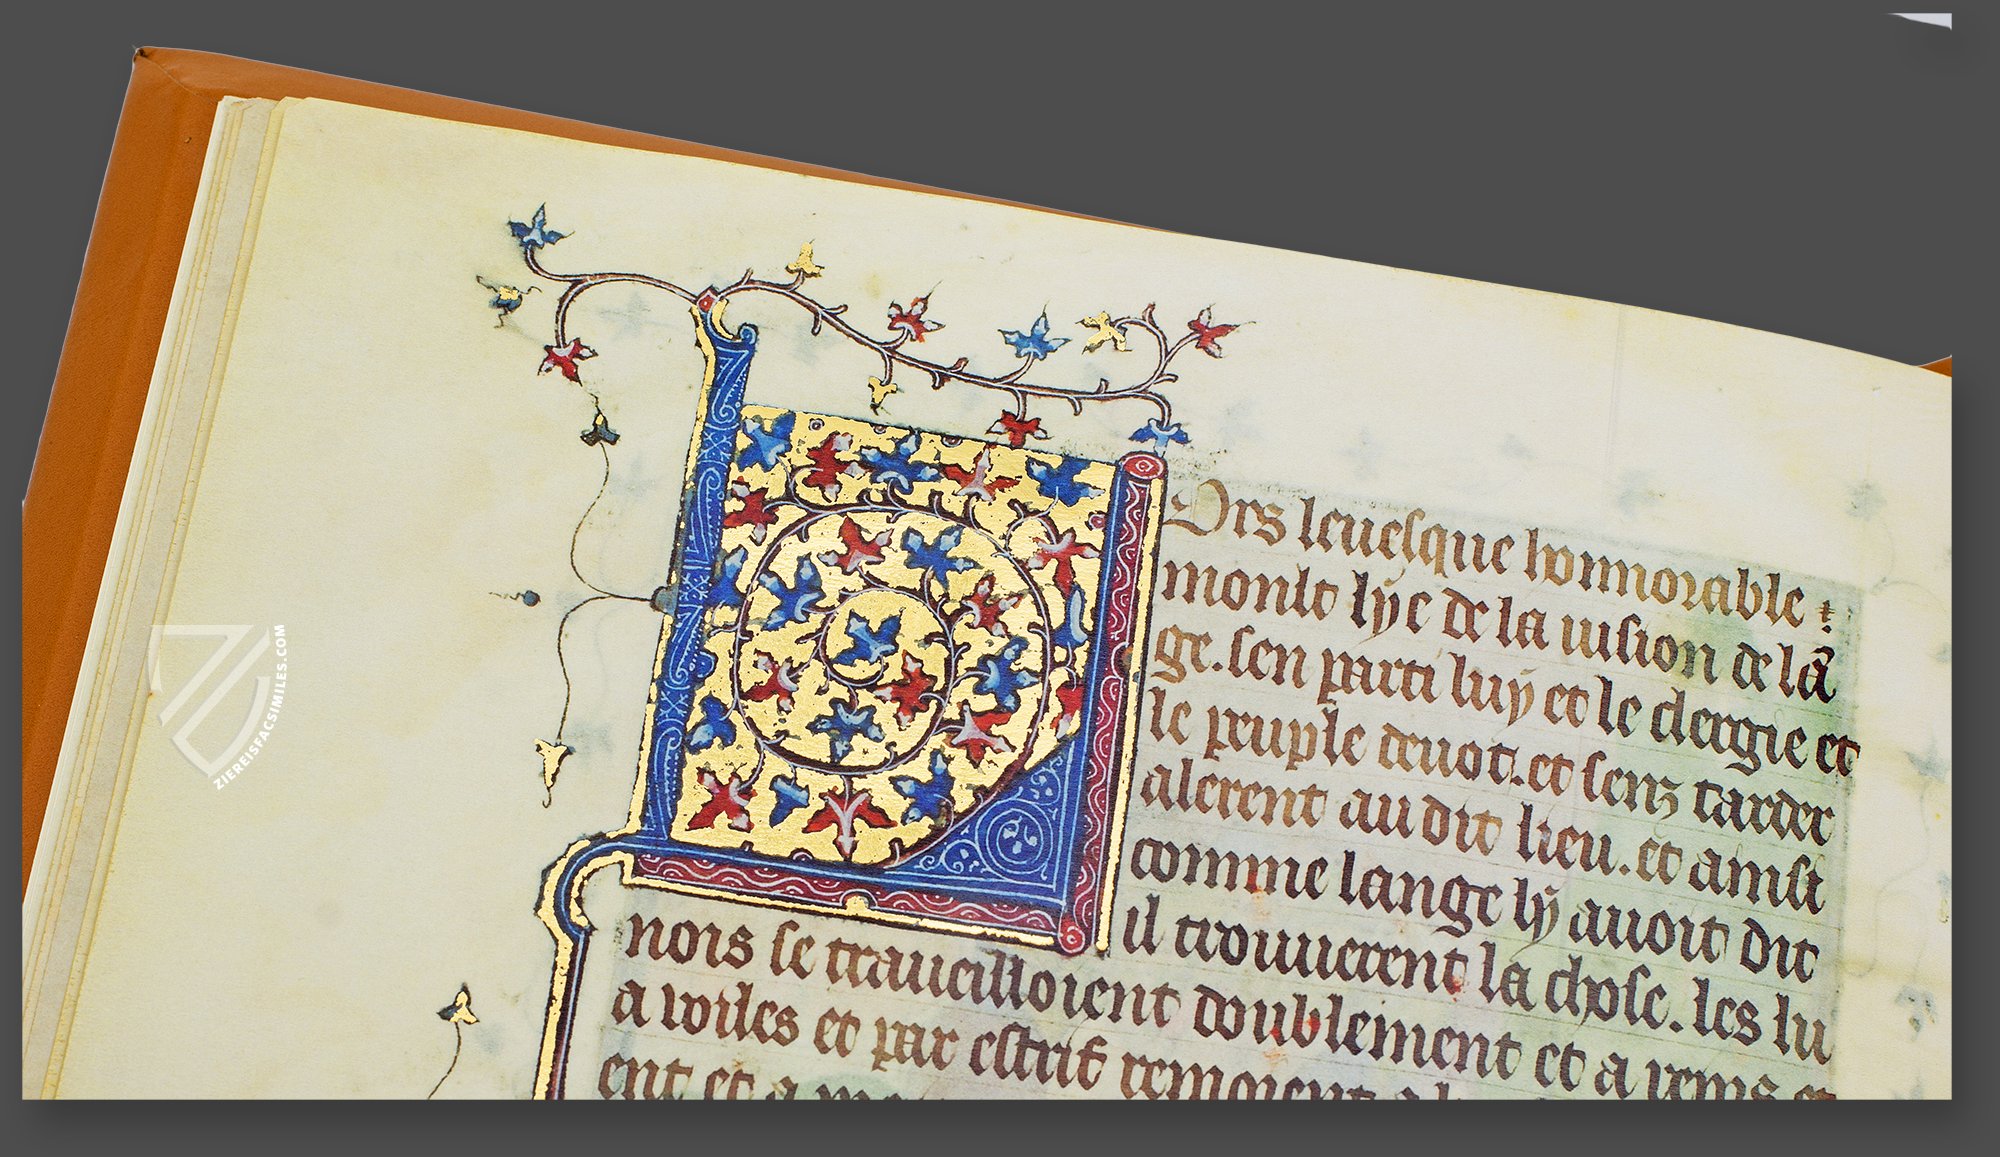 Ors leuesque honnorable ⁊
moult lye de la uision de lā
ge. sen parti luy et le clergie et
le peuple deuot. et senz tarder
alerent au dit lieu. et ainsi
comme lange ly auoit dit
il trouuerent la chose. les lu
nois se traueilloient doublement et a reins et
a voiles et par estrif remoient
ent et a
ZIEREISFACSIMILES.COM